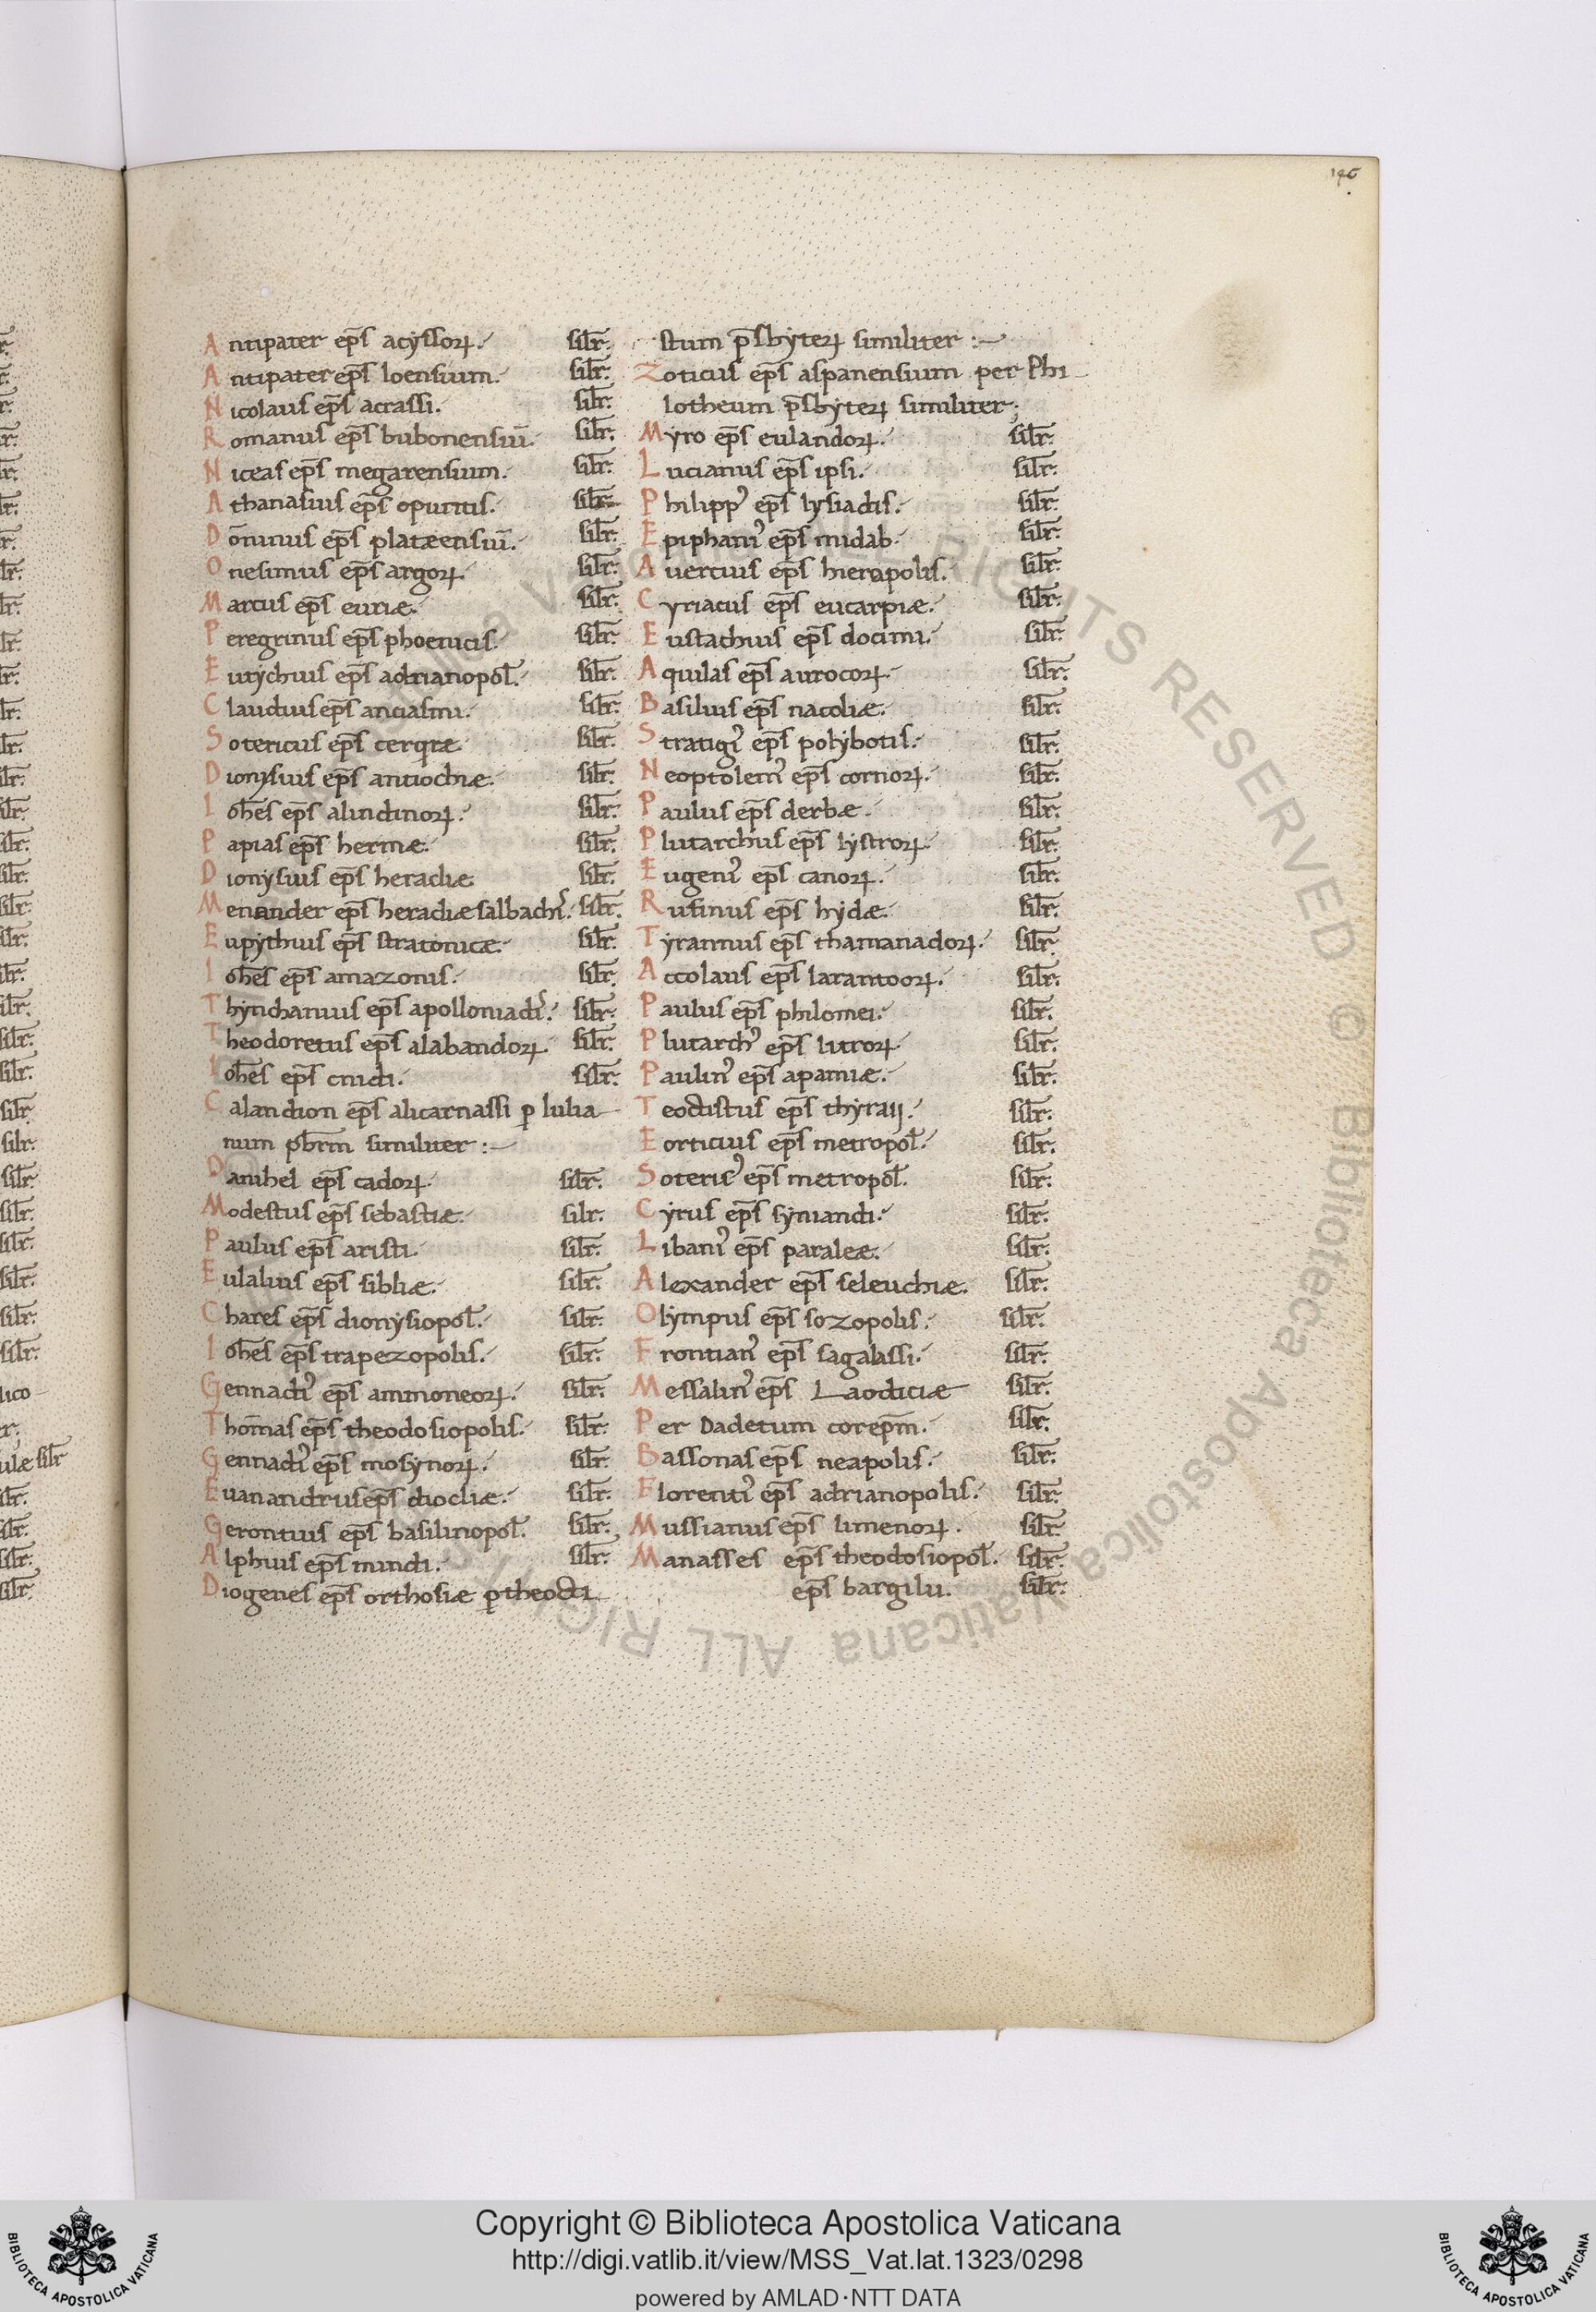 196
Antipater ep̅s acyssoꝝ. sil̅r.
Antipater ep̅s loensium. sil̅r.
Nicolaus ep̅s acrassi. sil̅r.
Romanus ep̅s bubonensiū. sil̅r.
Niceas ep̅s megarensium. sil̅r.
Athanasius ep̅s opuntis. sil̅r.
Dōninus ep̅s platæensiū. sil̅r.
Onesimus ep̅s argoꝝ. sil̅r.
Marcus ep̅s euriæ. sil̅r.
Peregrinus ep̅s phoenicis. sil̅r.
Eutychius ep̅s adrianopol̅. sil̅r.
Claudius ep̅s anciasmi. sil̅r.
Sotericus ep̅s cerqræ. sil̅r.
Dionysius ep̅s antiochiæ. sil̅r.
Ioh̅es ep̅s alindinoꝝ. sil̅r.
Papias ep̅s hermæ. sil̅r.
Dionysius ep̅s heracliæ sil̅r.
Menander ep̅s heracliæ salbachi. sil̅r.
Eupythius ep̅s stratonicæ. sil̅r.
Ioh̅es ep̅s amazonis. sil̅r.
Thynchanius ep̅s apolloniadis. sil̅r.
Theodoretus ep̅s alabandoꝝ. sil̅r.
Ioh̅es ep̅s cnidi. sil̅r.
Calandion ep̅s alicarnassi ꝑ Iulia
num pb̅rm similiter :-
Danihel ep̅s cadoꝝ. sil̅r.
Modestus ep̅s sebastiæ. silr.
Paulus ep̅s aristi. sil̅r.
Eulalius ep̅s sibliæ. sil̅r.
Chares ep̅s dionysiopol̅. sil̅r.
Ioh̅es ep̅s trapezopolis. sil̅r.
Gennadi᾽ ep̅s ammoneoꝝ. sil̅r.
Thom̅as ep̅s theodosiopolis. sil̅r.
Gennadi᾽ ep̅s mosynoꝝ. sil̅r.
Euanandrus ep̅s diocliæ. sil̅r.
Gerontius ep̅s basilinopol̅. sil̅r.
Alphius ep̅s mindi. sil̅r.
Diogenes ep̅s orthosiæ ꝑ theocti
stum p̅sbyteꝝ similiter :-
Zoticus ep̅s aspanensium per Phi
lotheum p̅sbyteꝝ similiter;
Myro ep̅s eulandoꝝ. sil̅r.
Lucianus ep̅s ipsi. sil̅r.
Philipp᾽ ep̅s lysiadis. sil̅r.
Epiphani᾽ ep̅s midab. sil̅r.
Auercius ep̅s hierapolis. sil̅r.
Cyriacus ep̅s eucarpiæ. sil̅r.
Eustachius ep̅s docimi. sil̅r.
Aquilas ep̅s aurocoꝝ. sil̅r.
Basilius ep̅s nacoliæ. sil̅r.
Stratigi᾽ ep̅s polybotis. sil̅r.
Neoptolem᾽ ep̅s cornoꝝ. sil̅r.
Paulus ep̅s derbæ. sil̅r.
Plutarchus ep̅s lystroꝝ. sil̅r.
Eugeni᾽ ep̅s canoꝝ. sil̅r.
Rufinus ep̅s hydæ. sil̅r.
Tyrannus ep̅s thamanadoꝝ. sil̅r.
Accolaus ep̅s larantooꝝ. sil̅r.
Paulus ep̅s philomei. sil̅r.
Plutarch᾽ ep̅s litroꝝ. sil̅r.
Paulin᾽ ep̅s apamiæ. sil̅r.
Teoctistus ep̅s thyraij. sil̅r.
Eorticius ep̅s metropol̅. sil̅r.
Soteric᾽ ep̅s metropol̅. sil̅r.
Cyrus ep̅s syniandi. sil̅r.
Libani᾽ ep̅s paraleæ. sil̅r.
Alexander ep̅s seleuchiæ. sil̅r.
Olympus ep̅s sozopolis. sil̅r.
Frontian᾽ ep̅s sagalassi. sil̅r.
Messalin᾽ ep̅s Laodiciæ sil̅r.
Per Dadetum corep̅m. sil̅r.
Bassonas ep̅s neapolis. sil̅r.
Florenti᾽ ep̅s adrianopolis. sil̅r.
Mussianus ep̅s limenoꝝ. sil̅r.
Manasses ep̅s theodosiopol̅. sil̅r.
ep̅s bargilu. sil̅r.
Biblioteca Apostolica Vaticana ALL RIGHTS RESERVED ©
Copyright © Biblioteca Apostolica Vaticana
http://digi.vatlib.it/view/MSS_Vat.lat.1323/0298
powered by AMLAD·NTT DATA
BIBLIOTECA APOSTOLICA VATICANA
BIBLIOTECA APOSTOLICA VATICANA